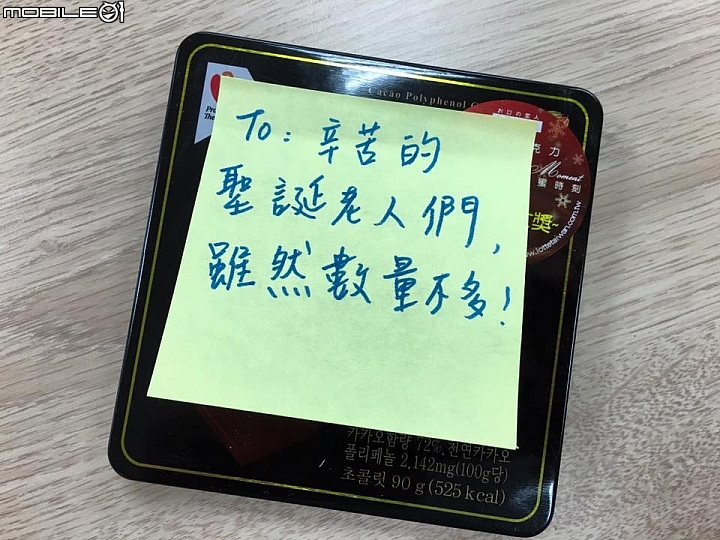 MOBILE01
Cacao Polyphenol
To: 辛苦的
聖誕老人們,
雖然數量不多!
お口の恋人
克力
Moment
蜜時刻
獎~
www.lottetaiwan.com.tw
카카오함량 72%, 천연카카오
폴리페놀 2,142mg(100g당)
초콜릿 90 g (525 kcal)